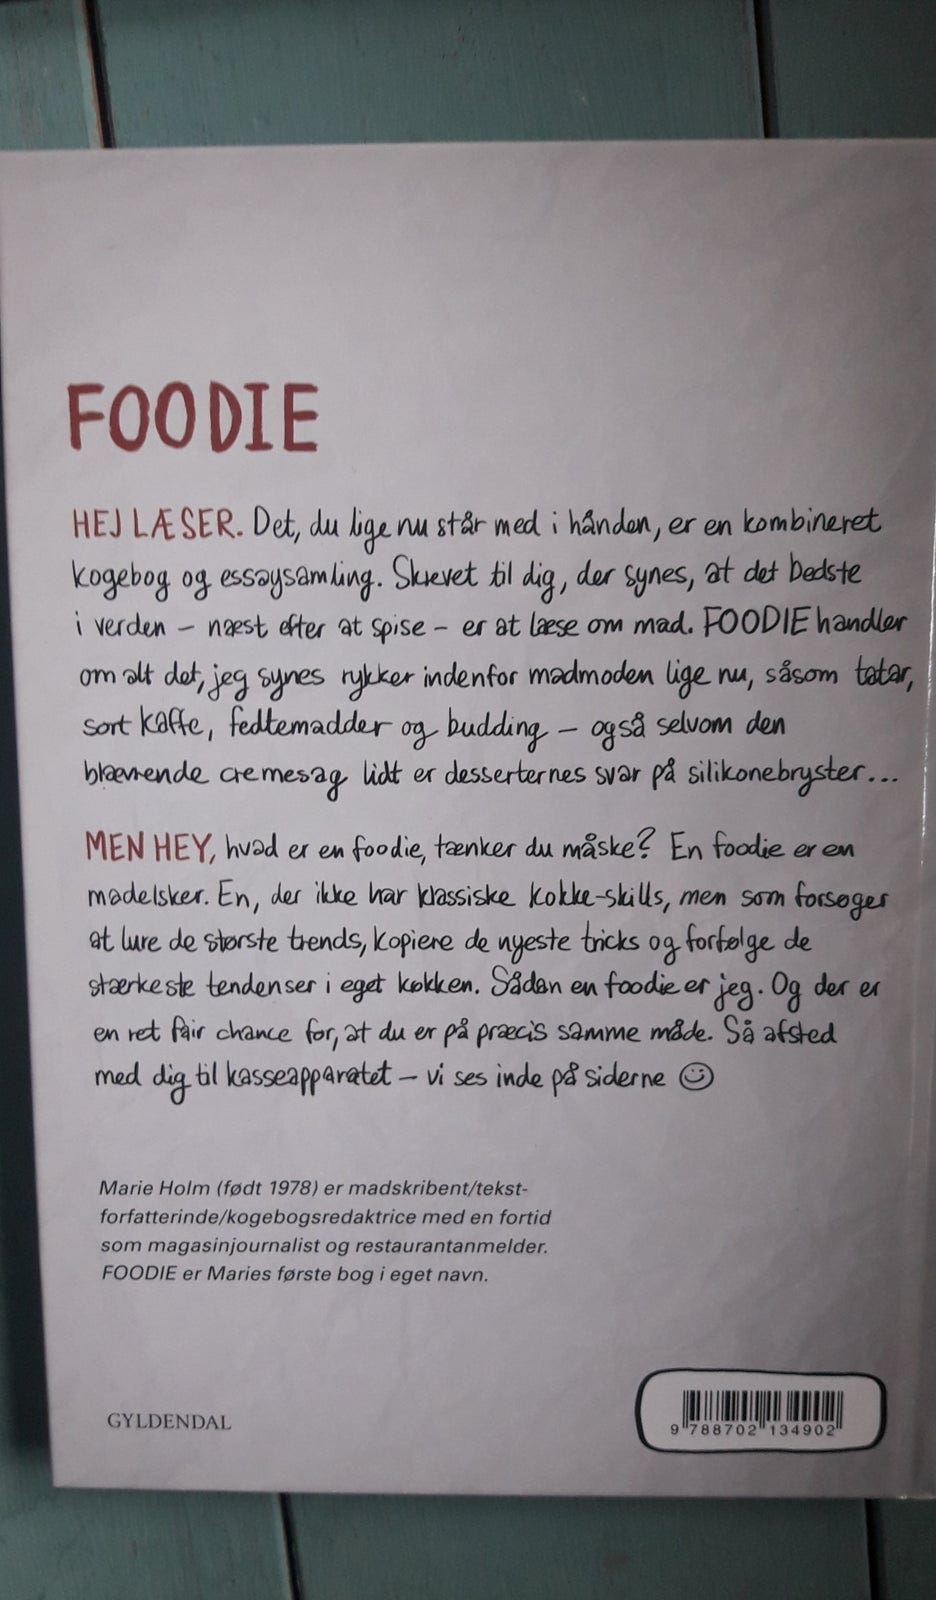 FOODIE
HEJ LÆSER. Det, du lige nu står med i hånden, er en kombineret
kogebog og essaysamling. Skrevet til dig, der synes, at det bedste
i verden – næst efter at spise – er at læse om mad. FOODIE handler
om alt det, jeg synes rykker indenfor madmoden lige nu, såsom tatar,
sort kaffe, fedtemadder og budding – også selvom den
blævrende cremesag lidt er desserternes svar på silikonebryster...
MEN HEY, hvad er en foodie, tænker du måske? En foodie er en
madelsker. En, der ikke har klassiske kokke-skills, men som forsøger
at lure de største trends, kopiere de nyeste tricks og forfølge de
stærkeste tendenser i eget køkken. Sådan en foodie er jeg. Og der er
en ret fair chance for, at du er på præcis samme måde. Så afsted
med dig til kasseapparatet – vi ses inde på siderne ☺
Marie Holm (født 1978) er madskribent/tekst-
forfatterinde/kogebogsredaktrice med en fortid
som magasinjournalist og restaurantanmelder.
FOODIE er Maries første bog i eget navn.
GYLDENDAL
9 788702 134902